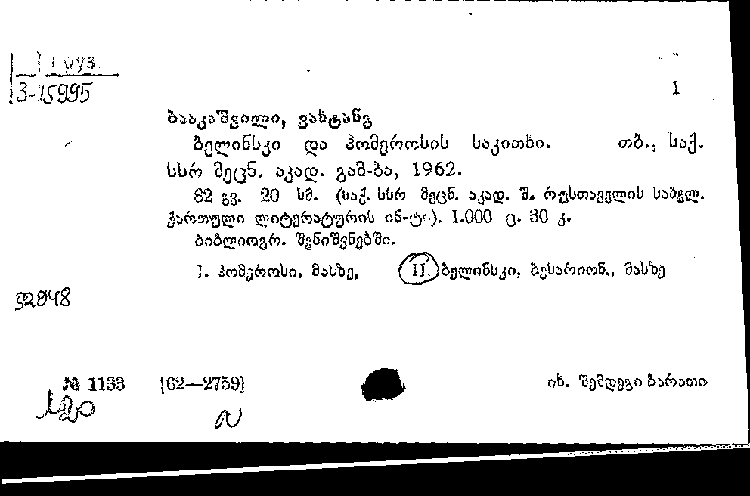 1 груз.
3-15995
1
ბააკაშვილი, ვახტანგ
ბელინსკი და ჰომეროსის საკითხი. თბ., საქ.
სსრ მეცნ. აკად. გამ-ბა, 1962.
82 გვ. 20 სმ. (საქ. სსრ მეცნ. აკად. შ. რუსთაველის სახელ.
ქართული ლიტერატურის ინ-ტი). 1.000 ც. 30 კ.
ბიბლიოგრ. შენიშვნებში.
I. ჰომეროსი, მასზე, II ბელინსკი, ბესარიონ., მასზე
№ 1133 [62—2759] იხ. შემდეგი ბარათი